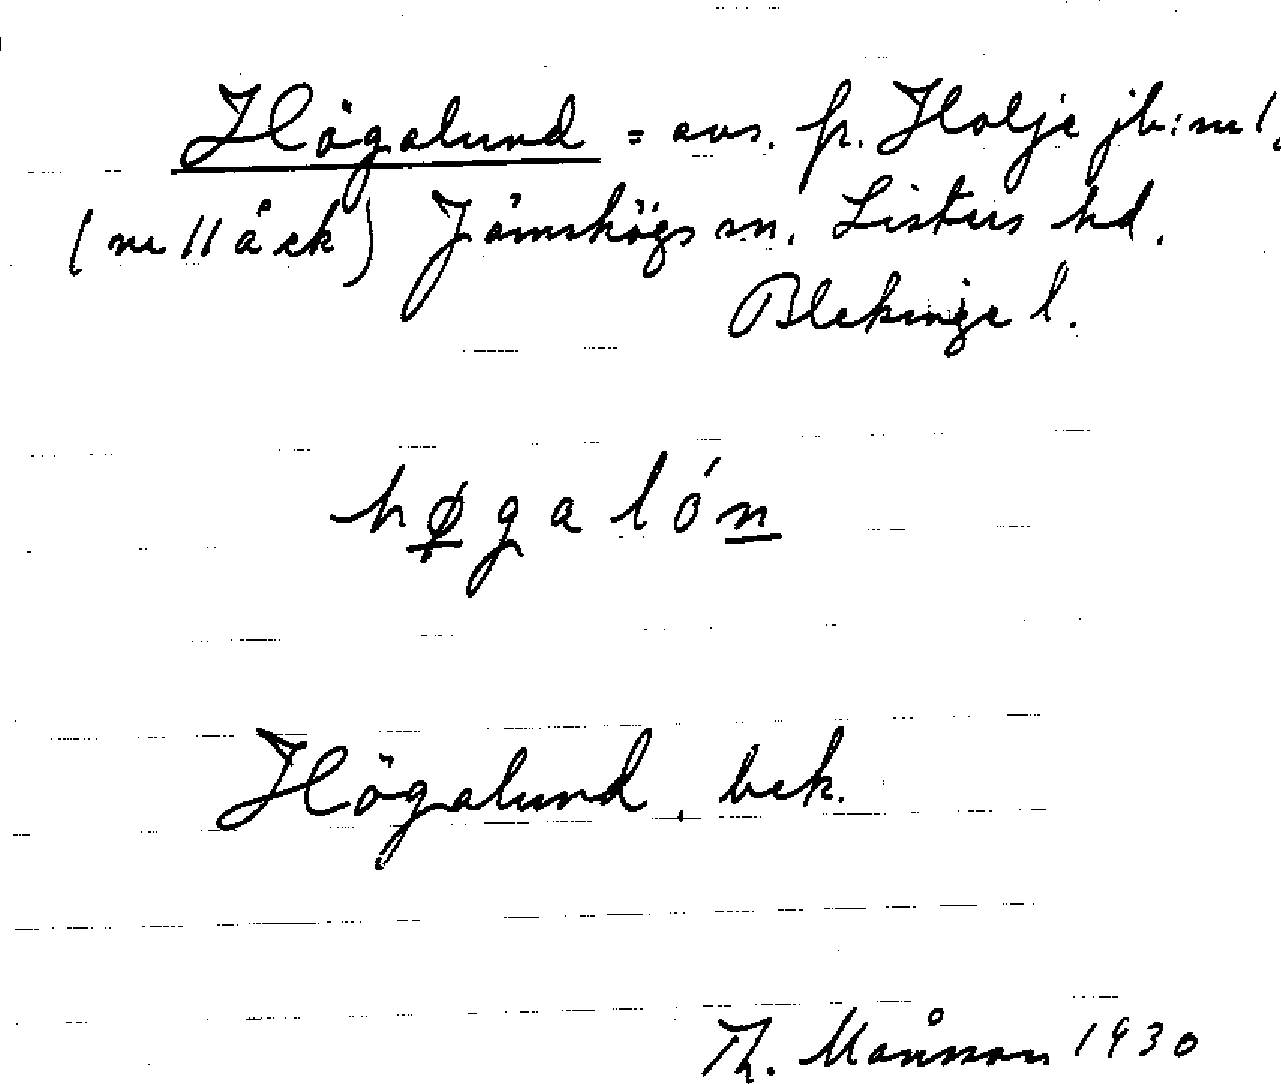 Högalund = avs. fr. Holje jb:nr 1,
(nr 11 å ek) Jämshögs sn, Listers hd,
Blekinge l.
hø̨galón̲
Högalund, bek.
Th. Månsson 1930